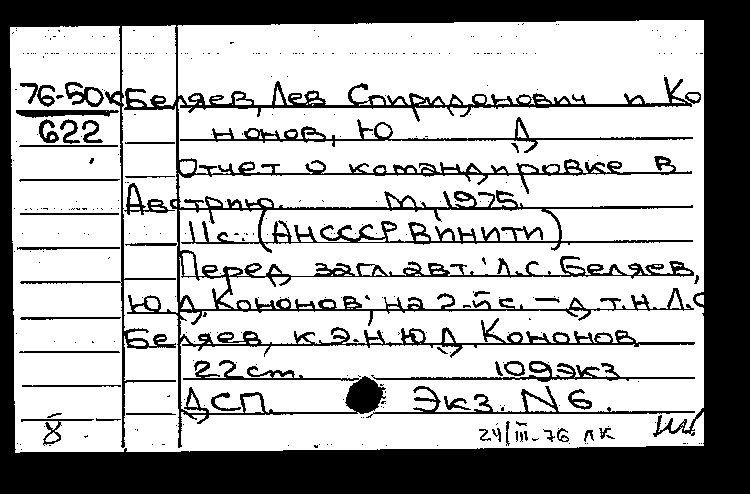 76-50к Беляев, Лев Спиридонович и Ко
622 нонов, Ю Д
Отчет о командировке в
Австрию. М., 1975.
11с. (АНСССР. ВИНИТИ).
Перед загл. авт.: Л.С. Беляев,
Ю.Д. Кононов; на 2-й с. – д.т.н. Л.С
Беляев, к.э.н. Ю.Д. Кононов
22 ст. 109экз
ДСП. Экз. N 6.
8 24/III-76 ЛК